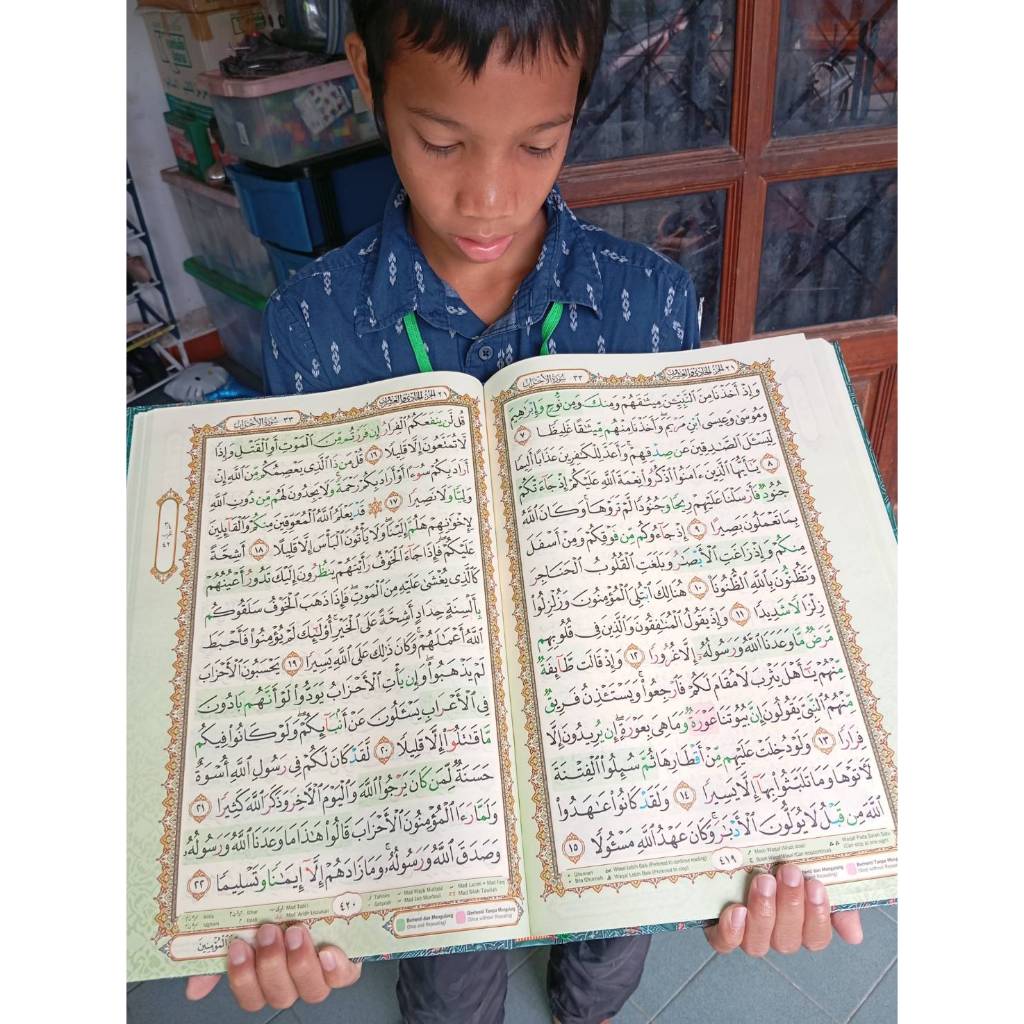 سُورَةُ الْأَحْزَابِ ٣٣
٢١ الجُزْءُ الحَادِي وَالعِشْرُونَ
وَإِذْ أَخَذْنَا مِنَ النَّبِيِّينَ مِيثَاقَهُمْ وَمِنكَ وَمِن نُّوحٍ وَإِبْرَاهِيمَ
وَمُوسَىٰ وَعِيسَى ابْنِ مَرْيَمَ وَأَخَذْنَا مِنْهُم مِّيثَاقًا غَلِيظًا ٧
لِّيَسْأَلَ الصَّادِقِينَ عَن صِدْقِهِمْ وَأَعَدَّ لِلْكَافِرِينَ عَذَابًا أَلِيمًا
٨ يَا أَيُّهَا الَّذِينَ آمَنُوا اذْكُرُوا نِعْمَةَ اللَّهِ عَلَيْكُمْ إِذْ جَاءَتْكُمْ
جُنُودٌ فَأَرْسَلْنَا عَلَيْهِمْ رِيحًا وَجُنُودًا لَّمْ تَرَوْهَا وَكَانَ اللَّهُ
بِمَا تَعْمَلُونَ بَصِيرًا ٩ إِذْ جَاءُوكُم مِّن فَوْقِكُمْ وَمِنْ أَسْفَلَ
مِنكُمْ وَإِذْ زَاغَتِ الْأَبْصَارُ وَبَلَغَتِ الْقُلُوبُ الْحَنَاجِرَ
وَتَظُنُّونَ بِاللَّهِ الظُّنُونَا ١٠ هُنَالِكَ ابْتُلِيَ الْمُؤْمِنُونَ وَزُلْزِلُوا
زِلْزَالًا شَدِيدًا ١١ وَإِذْ يَقُولُ الْمُنَافِقُونَ وَالَّذِينَ فِي قُلُوبِهِم
مَّرَضٌ مَّا وَعَدَنَا اللَّهُ وَرَسُولُهُ إِلَّا غُرُورًا ١٢ وَإِذْ قَالَت طَّائِفَةٌ
مِّنْهُمْ يَا أَهْلَ يَثْرِبَ لَا مُقَامَ لَكُمْ فَارْجِعُوا وَيَسْتَأْذِنُ فَرِيقٌ
مِّنْهُمُ النَّبِيَّ يَقُولُونَ إِنَّ بُيُوتَنَا عَوْرَةٌ وَمَا هِيَ بِعَوْرَةٍ إِن يُرِيدُونَ إِلَّا
فِرَارًا ١٣ وَلَوْ دُخِلَتْ عَلَيْهِم مِّنْ أَقْطَارِهَا ثُمَّ سُئِلُوا الْفِتْنَةَ
لَآتَوْهَا وَمَا تَلَبَّثُوا بِهَا إِلَّا يَسِيرًا ١٤ وَلَقَدْ كَانُوا عَاهَدُوا
اللَّهَ مِن قَبْلُ لَا يُوَلُّونَ الْأَدْبَارَ وَكَانَ عَهْدُ اللَّهِ مَسْئُولًا ١٥
٤١٩
سُورَةُ الْأَحْزَابِ ٣٣
٢١ الجُزْءُ الحَادِي وَالعِشْرُونَ
قُل لَّن يَنفَعَكُمُ الْفِرَارُ إِن فَرَرْتُم مِّنَ الْمَوْتِ أَوِ الْقَتْلِ وَإِذًا
لَّا تُمَتَّعُونَ إِلَّا قَلِيلًا ١٦ قُلْ مَن ذَا الَّذِي يَعْصِمُكُم مِّنَ اللَّهِ إِنْ
أَرَادَ بِكُمْ سُوءًا أَوْ أَرَادَ بِكُمْ رَحْمَةً وَلَا يَجِدُونَ لَهُم مِّن دُونِ اللَّهِ
وَلِيًّا وَلَا نَصِيرًا ١٧ ۞ قَدْ يَعْلَمُ اللَّهُ الْمُعَوِّقِينَ مِنكُمْ وَالْقَائِلِينَ
لِإِخْوَانِهِمْ هَلُمَّ إِلَيْنَا وَلَا يَأْتُونَ الْبَأْسَ إِلَّا قَلِيلًا ١٨ أَشِحَّةً
عَلَيْكُمْ فَإِذَا جَاءَ الْخَوْفُ رَأَيْتَهُمْ يَنظُرُونَ إِلَيْكَ تَدُورُ أَعْيُنُهُمْ
كَالَّذِي يُغْشَىٰ عَلَيْهِ مِنَ الْمَوْتِ فَإِذَا ذَهَبَ الْخَوْفُ سَلَقُوكُم
بِأَلْسِنَةٍ حِدَادٍ أَشِحَّةً عَلَى الْخَيْرِ أُولَٰئِكَ لَمْ يُؤْمِنُوا فَأَحْبَطَ
اللَّهُ أَعْمَالَهُمْ وَكَانَ ذَٰلِكَ عَلَى اللَّهِ يَسِيرًا ١٩ يَحْسَبُونَ الْأَحْزَابَ
لَمْ يَذْهَبُوا وَإِن يَأْتِ الْأَحْزَابُ يَوَدُّوا لَوْ أَنَّهُم بَادُونَ
فِي الْأَعْرَابِ يَسْأَلُونَ عَنْ أَنبَائِكُمْ وَلَوْ كَانُوا فِيكُم
مَّا قَاتَلُوا إِلَّا قَلِيلًا ٢٠ لَّقَدْ كَانَ لَكُمْ فِي رَسُولِ اللَّهِ أُسْوَةٌ
حَسَنَةٌ لِّمَن كَانَ يَرْجُو اللَّهَ وَالْيَوْمَ الْآخِرَ وَذَكَرَ اللَّهَ كَثِيرًا ٢١
وَلَمَّا رَأَى الْمُؤْمِنُونَ الْأَحْزَابَ قَالُوا هَٰذَا مَا وَعَدَنَا اللَّهُ وَرَسُولُهُ
وَصَدَقَ اللَّهُ وَرَسُولُهُ وَمَا زَادَهُمْ إِلَّا إِيمَانًا وَتَسْلِيمًا ٢٢
٤٢٠